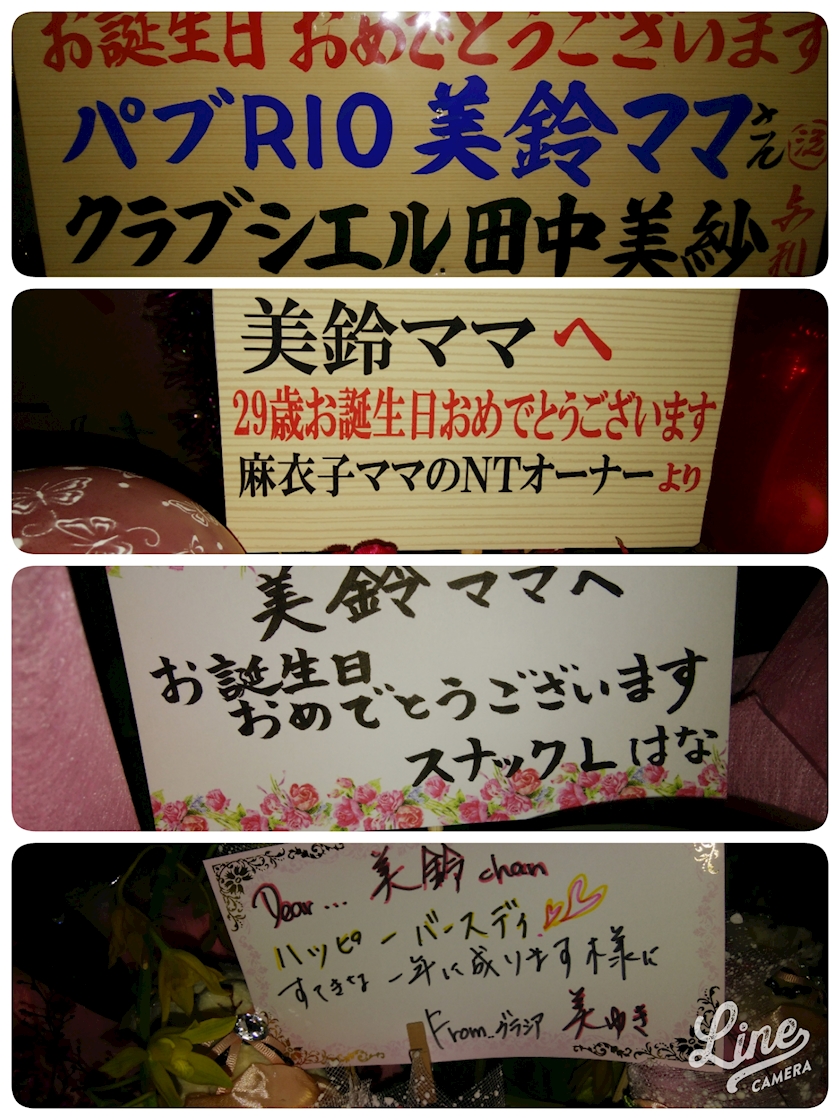 お誕生日 おめでとうございます
パブRIO 美鈴ママさん
クラブシエル 田中美紗
美鈴ママへ
29歳お誕生日おめでとうございます
麻衣子ママのNTオーナーより
美鈴ママへ
お誕生日
おめでとうございます
スナックL はな
Dear... 美鈴chan
ハッピーバースディ
すてきな一年に成ります様に
From..グラシア 美ゆき
Line
CAMERA